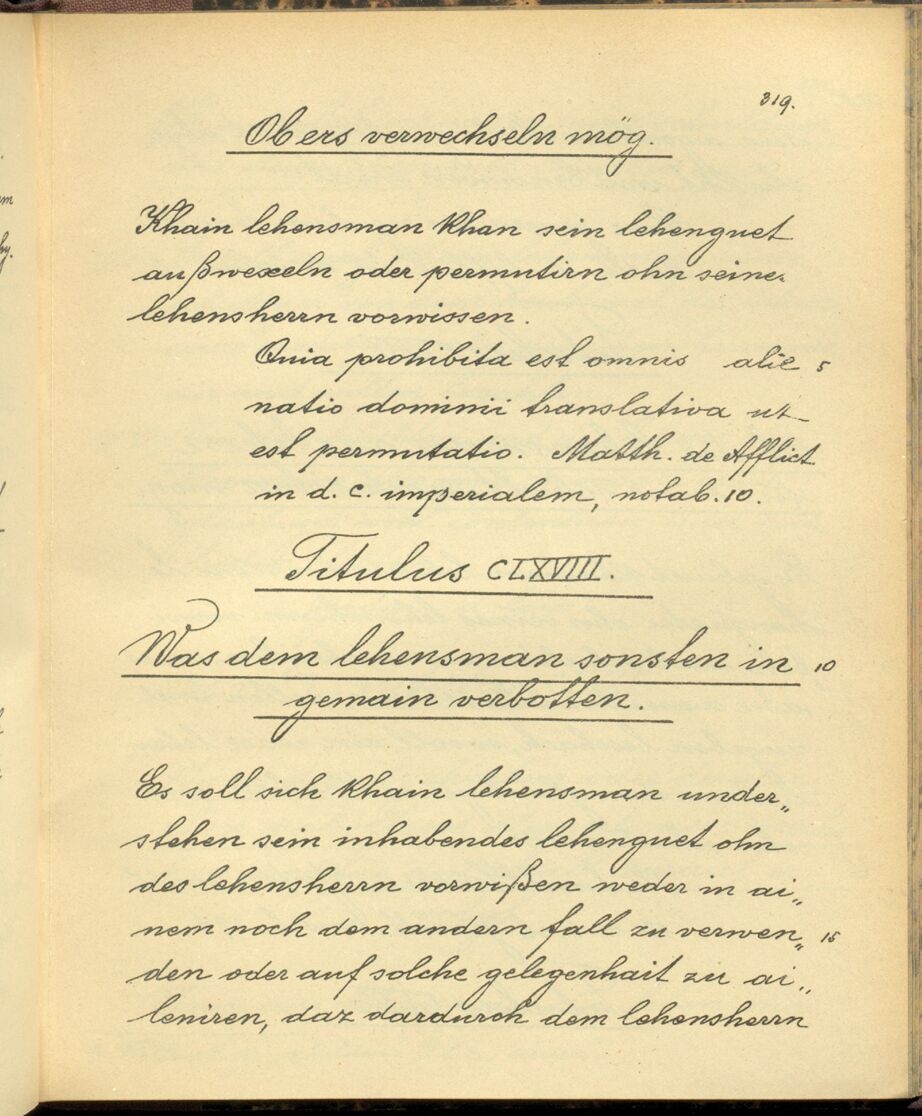 319.
Ob ers verwechseln mög.
Khain lehensman khan sein lehenguet
außwexeln oder permutirn ohn seines
lehensherrn vorwissen.
Quia prohibita est omnis alie 5
natio dominii translativa ut
est permutatio. Matth. de Afflict
in d. c. imperialem, notab. 10.
Titulus CLXVIII.
Was dem lehensman sonsten in 10
gemain verbotten.
Es soll sich khain lehensman under„
stehen sein inhabendes lehenguet ohn
des lehensherrn vorwißen weder in ai„
nem noch dem andern fall zu verwen„ 15
den oder auf solche gelegenhait zu ai„
leniren, daz dardurch dem lehensherrn